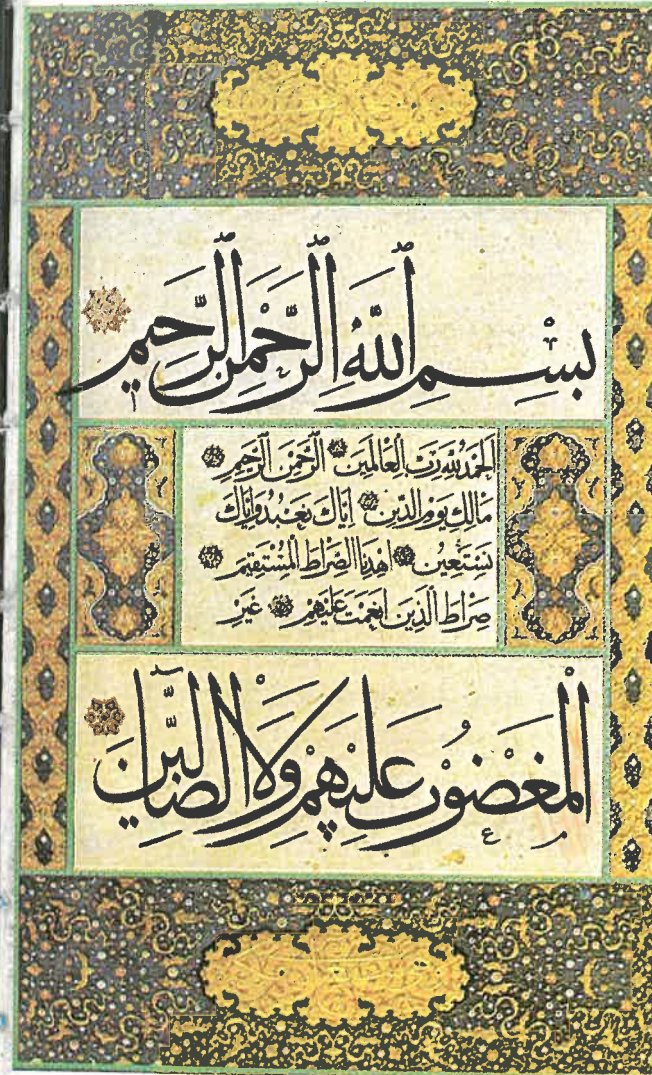 بِسْمِ ٱللَّهِ ٱلرَّحْمَٰنِ ٱلرَّحِيمِ
اَلْحَمْدُ لِلّٰهِ رَبِّ الْعَالَمِينَ الرَّحْمٰنِ الرَّحِيمِ
مَالِكِ يَوْمِ الدِّينِ اِيَّاكَ نَعْبُدُ وَاِيَّاكَ
نَسْتَعِينُ اِهْدِنَا الصِّرَاطَ الْمُسْتَقِيمَ
صِرَاطَ الَّذِينَ اَنْعَمْتَ عَلَيْهِمْ غَيْرِ
الْمَغْضُوبِ عَلَيْهِمْ وَلَا الضَّالِّينَ